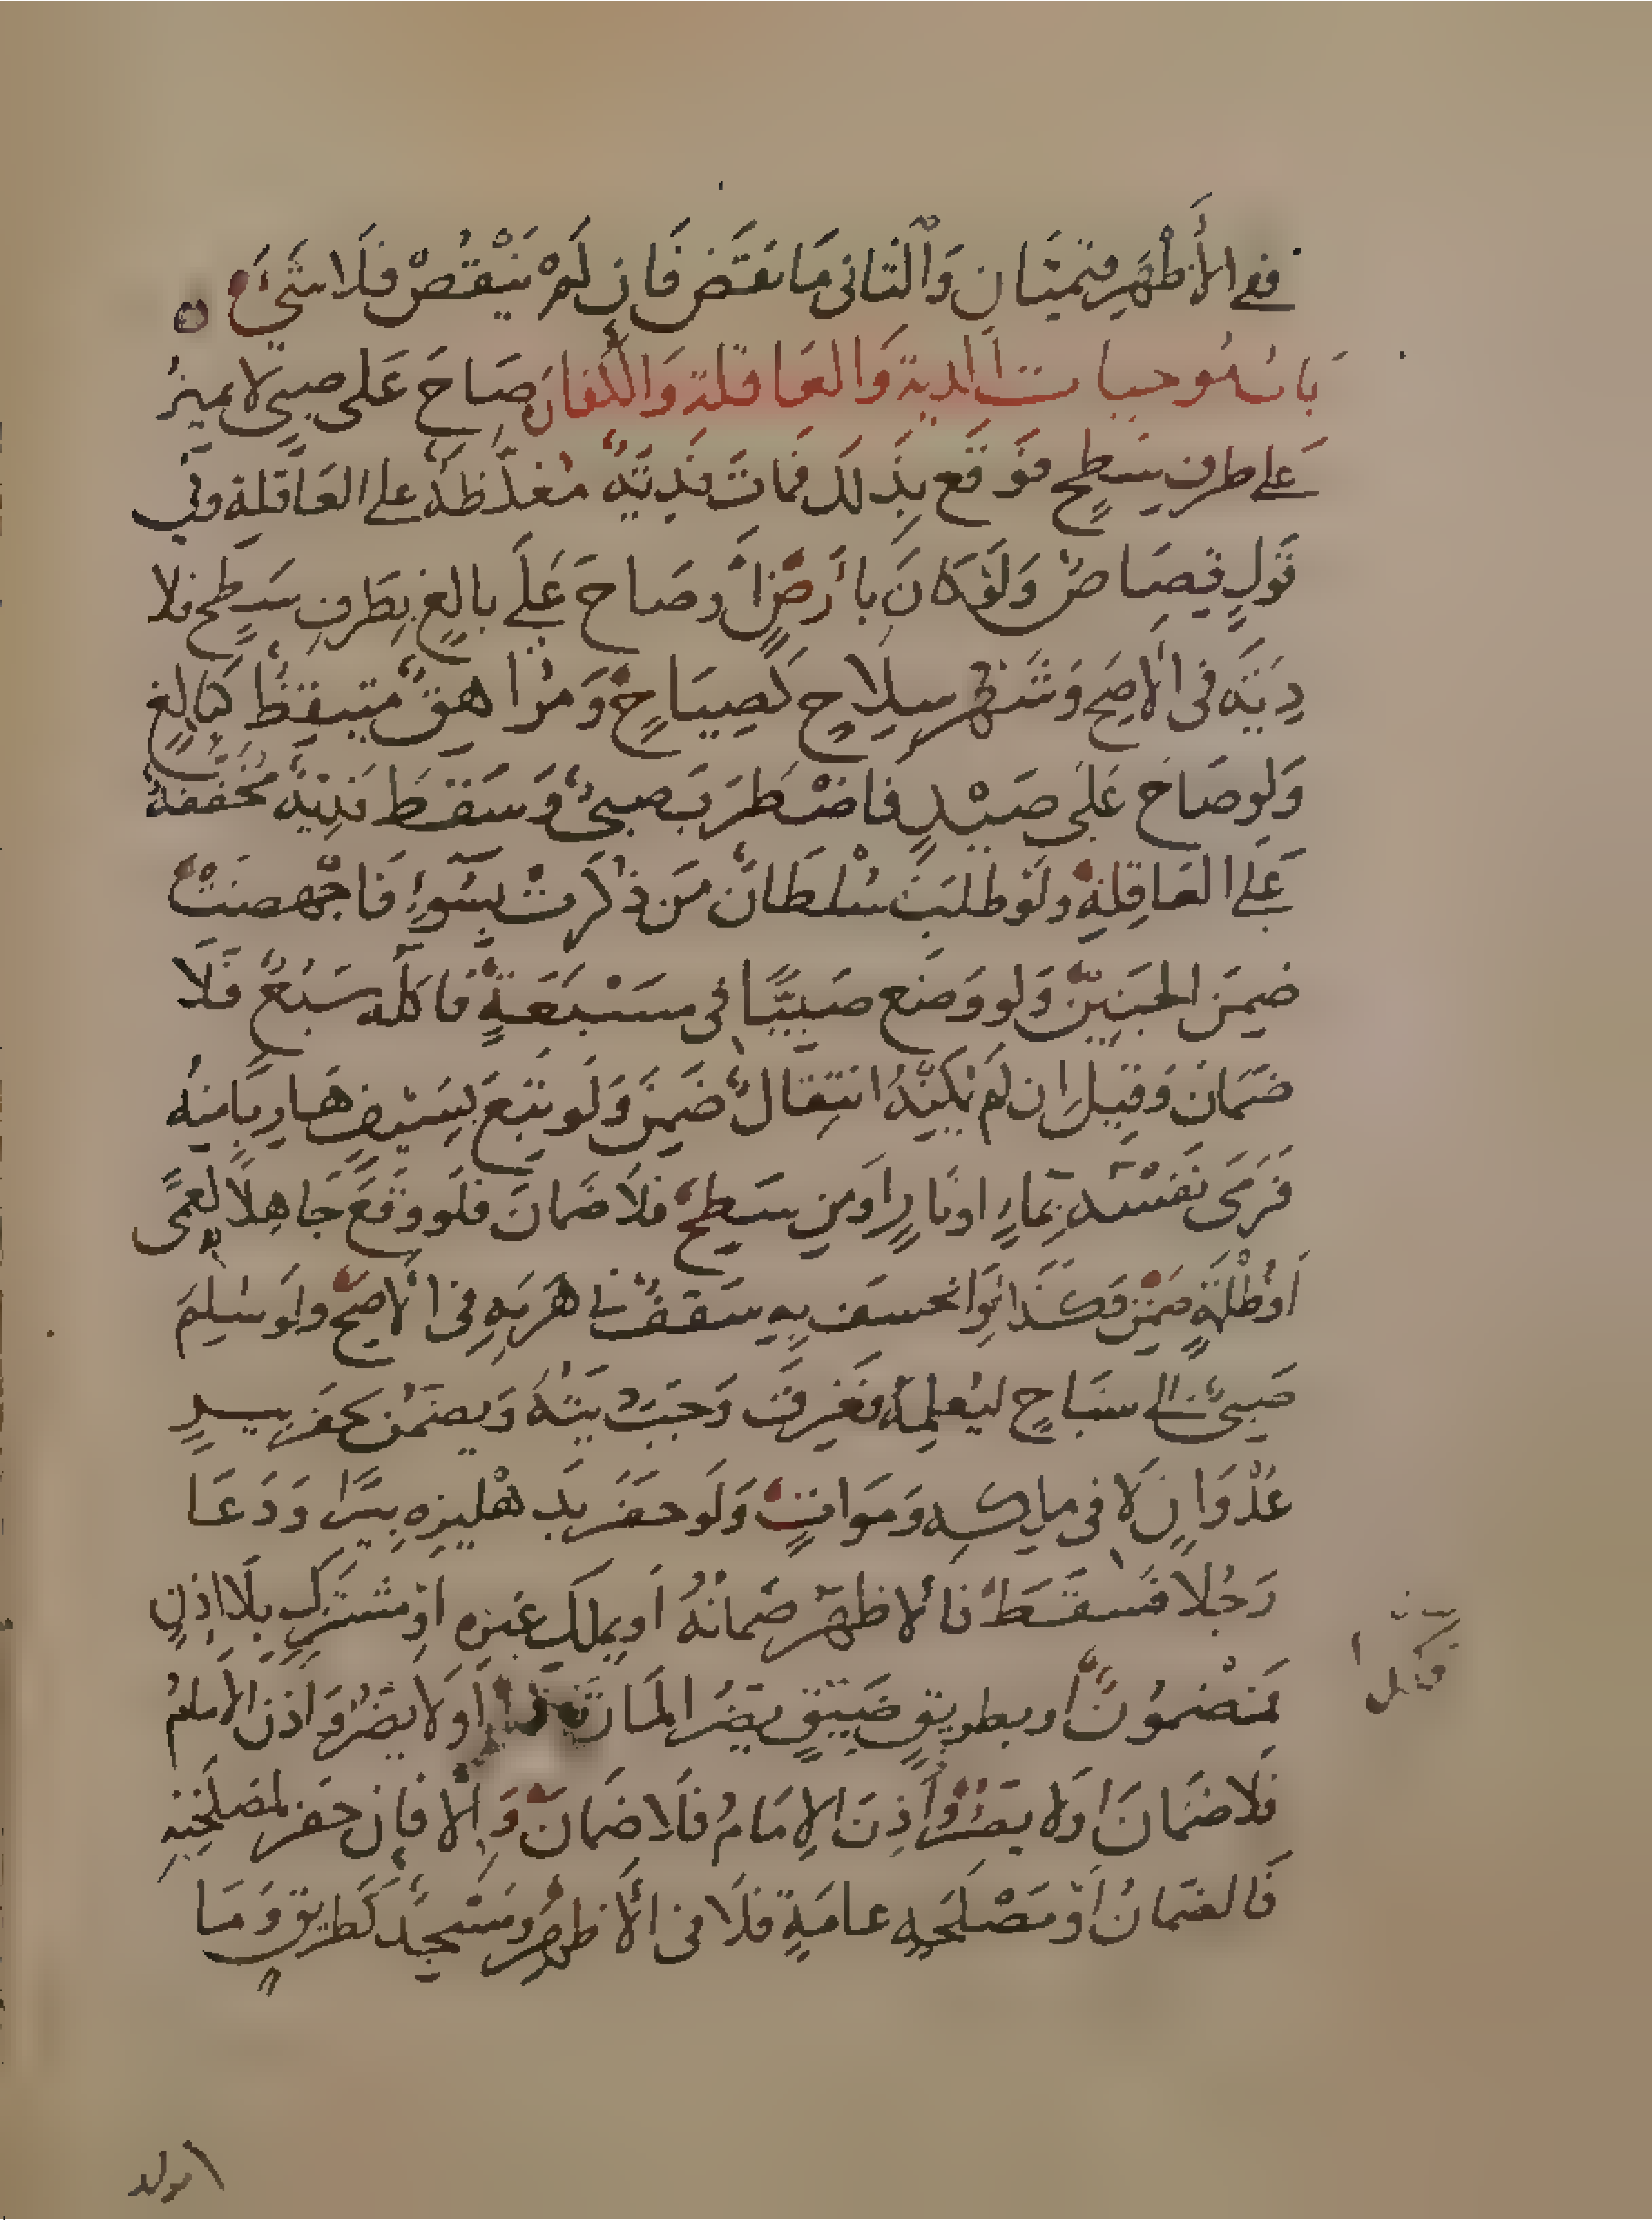 ففي الأظهر قيمتان والثاني ما نقص فان لم ينقص فلا شيء ه
باب موجبات الدية والعاقلة والكفارة صاح على صبي لا يميز
على طرف سطح فوقع بذلك فمات فدية مغلظة على العاقلة وفي
قول قصاص ولو كان بأرض أو صاح على بالغ بطرف سطح فلا
دية في الأصح وشهر سلاح كصياح ومراهق متيقظ كبالغ
ولو صاح على صيد فاضطرب صبي وسقط فدية مخففة
على العاقلة ولو طلب سلطان من ذكرت بسوء فاجهضت
ضمن الجنين ولو وضع صبيا في مسبعة فأكله سبع فلا
ضمان وقيل إن لم يمكنه انتقال ضمن ولو تبع بسيف هاربا منه
فرمى نفسه بماء او نار او من سطح فلا ضمان فلو وقع جاهلا لعمى
او ظلمة ضمن وكذا لو انخسف به سقف في هربه في الأصح ولو سلم
صبي إلى سباح ليعلمه فغرق وجبت ديته ويضمن بحفر بير
عدوان لا في ملكه وموات ولو حفر بدهليزه بيرا ودعا
رجلا فسقط فالأظهر ضمانه أو بملك غيره أو مشترك بلا إذن
فمضمون أو بطريق ضيق يضر المارة فكذا أو لا يضر وأذن الإمام
فلا ضمان أو لا يضر وأذن الإمام فلا ضمان وإلا فإن حفر لمصلحته
فالضمان أو مصلحة عامة فلا في الأظهر ومسجد كطريق وما
تولد